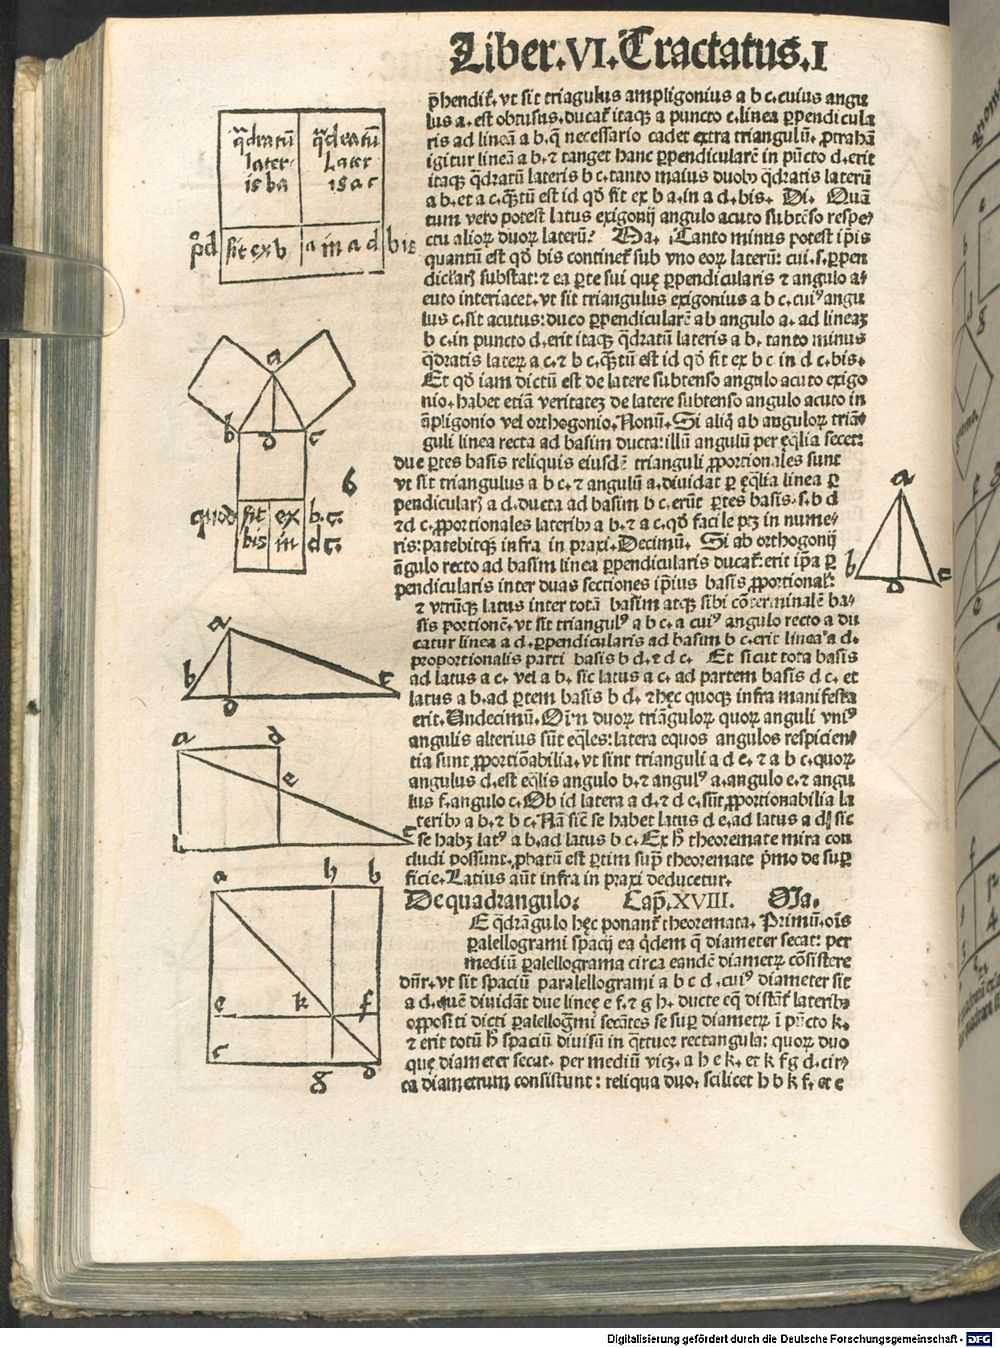 Liber.VI.Tractatus.I
p̄hendit̄. vt sit triāgulus ampligonius a b c. cuius angu
lus a. est obtusus. ducat̄ itaqꝫ a puncto c. linea ꝑpendicula
ris ad lineā a b. q̄ necessario cadet extra triangulū. ꝓtrahā
igitur lineā a b. ⁊ tanget hanc ꝑpendicularē in pūcto d. erit
itaqꝫ q̄dratū lateris b c. tanto maius duobꝰ q̄dratis laterū
a b. et a c. q̄ꝫtū est id qd̄ fit ex b a. in a d. bis. Di. Quā
tum vero potest latus exigonij angulo acuto subtēso respe/
ctu alioꝝ duoꝝ laterū? Ma. Tanto minus potest ip̄is
quantū est qd̄ bis continet̄ sub vno eoꝝ laterū: cui .s. ꝑpen
diclaꝝ substat: ⁊ ea ꝑte sui que ꝑpendicularis ⁊ angulo a/
cuto interiacet. vt sit triangulus exigonius a b c. cuiꝰ angu
lus c. sit acutus: duco ꝑpendicularē ab angulo a. ad lineaꝫ
b c. in puncto d. erit itaqꝫ q̄dratū lateris a b. tanto minus
q̄dratis lateꝝ a c. ⁊ b c. q̄ꝫtū est id qd̄ fit ex b c in d c. bis.
Et qd̄ iam dictū est de latere subtenso angulo acuto exigo
nio. habet etiā veritateꝫ de latere subtenso angulo acuto in
āpligonio vel orthogonio. Nonū. Si aliq̄ ab anguloꝝ triā/
guli linea recta ad basim ducta: illū angulū per eq̄lia secet:
due ꝑtes basis reliquis eiusdē trianguli ꝓportionales sunt
vt sit triangulus a b c. ⁊ angulū a. diuidat ꝑ eq̄lia linea ꝑ
pendicularꝭ a d. ducta ad basim b c. erūt ꝑtes basis .s. b d
⁊ d c. ꝓportionales lateribꝰ a b. ⁊ a c. qd̄ facile ptꝫ in nume/
ris: patebitqꝫ infra in praxi. Decimū. Si ab orthogonij
āgulo recto ad basim linea ꝑpendicularis ducat̄: erit ip̄a ꝑ
pendicularis inter duas sectiones ip̄ius basis ꝓportionalꝭ
⁊ vtrūqꝫ latus inter totā basim atqꝫ sibi cōterminalē ba/
sis portionē. vt sit triangulꝰ a b c. a cuiꝰ angulo recto a du
catur linea a d. ꝑpendicularis ad basim b c. erit linea a d.
proportionalis parti basis b d. ⁊ d c. Et sicut tota basis
ad latus a c. vel a b. sic latus a c. ad partem basis d c. et
latus a b. ad ꝑtem basis b d. ⁊ hec quoqꝫ infra manifesta
erit. Undecimū. Oīm duoꝝ triāguloꝝ quoꝝ anguli vniꝰ
angulis alterius sūt eq̄les: latera equos angulos respicien/
tia sunt ꝓportiōabilia. vt sint trianguli a d e. ⁊ a b c. quoꝝ
angulus d. est eq̄lis angulo b. ⁊ angulꝰ a. angulo e. ⁊ angu
lus f. angulo c. Ob id latera a d. ⁊ d e. sūt ꝓportionabilia la
teribꝰ a b. ⁊ b c. Nā sicē se habet latus d e. ad latus a d: sic
se habꝫ latꝰ a b. ad latus b c. Ex h̄ theoremate mira con
cludi possunt. ꝓbatū est ꝑtim sup̄ theoremate p̄mo de suꝑ
ficie. Latius aūt infra in praxi deducetur.
De quadrangulo: Cap̄. XVIII. Ma.
E q̄drāgulo hęc ponant̄ theoremata. Primū. oīs
ꝑalellogrami spacij ea q̄dem q̄ diameter secat: per
mediū ꝑalellograma circa eandē diametꝝ cōsistere
dn̄r. vt sit spaciū paralellogrami a b c d. cuiꝰ diameter sit
a d. quē diuidāt due lineę e f. ⁊ g h. ducte eq̄ distāt̄ lateribꝰ
oppositi dicti ꝑalelloḡmi secātes se suꝑ diametꝝ ī pūcto k.
⁊ erit totū h̄ spaciū diuisū in q̄ttuor rectangula: quoꝝ duo
que diameter secat. per mediū vicꝫ. a h e k. et k f g d. cir/
ca diametrum consistunt: reliqua duo. scilicet h b k f. et e
q̄dratū
later.
is ba
q̄dratū
Later
is a c
ꝓd
fit ex b
a in a d
bis
a
b
d
c
6
quod
fit
ex
b. c.
bis
in
d c.
a
b
c
d
a
b
c
d
a
d
e
c
a
h
b
e
k
f
c
g
d
Digitalisierung gefördert durch die Deutsche Forschungsgemeinschaft - DFG